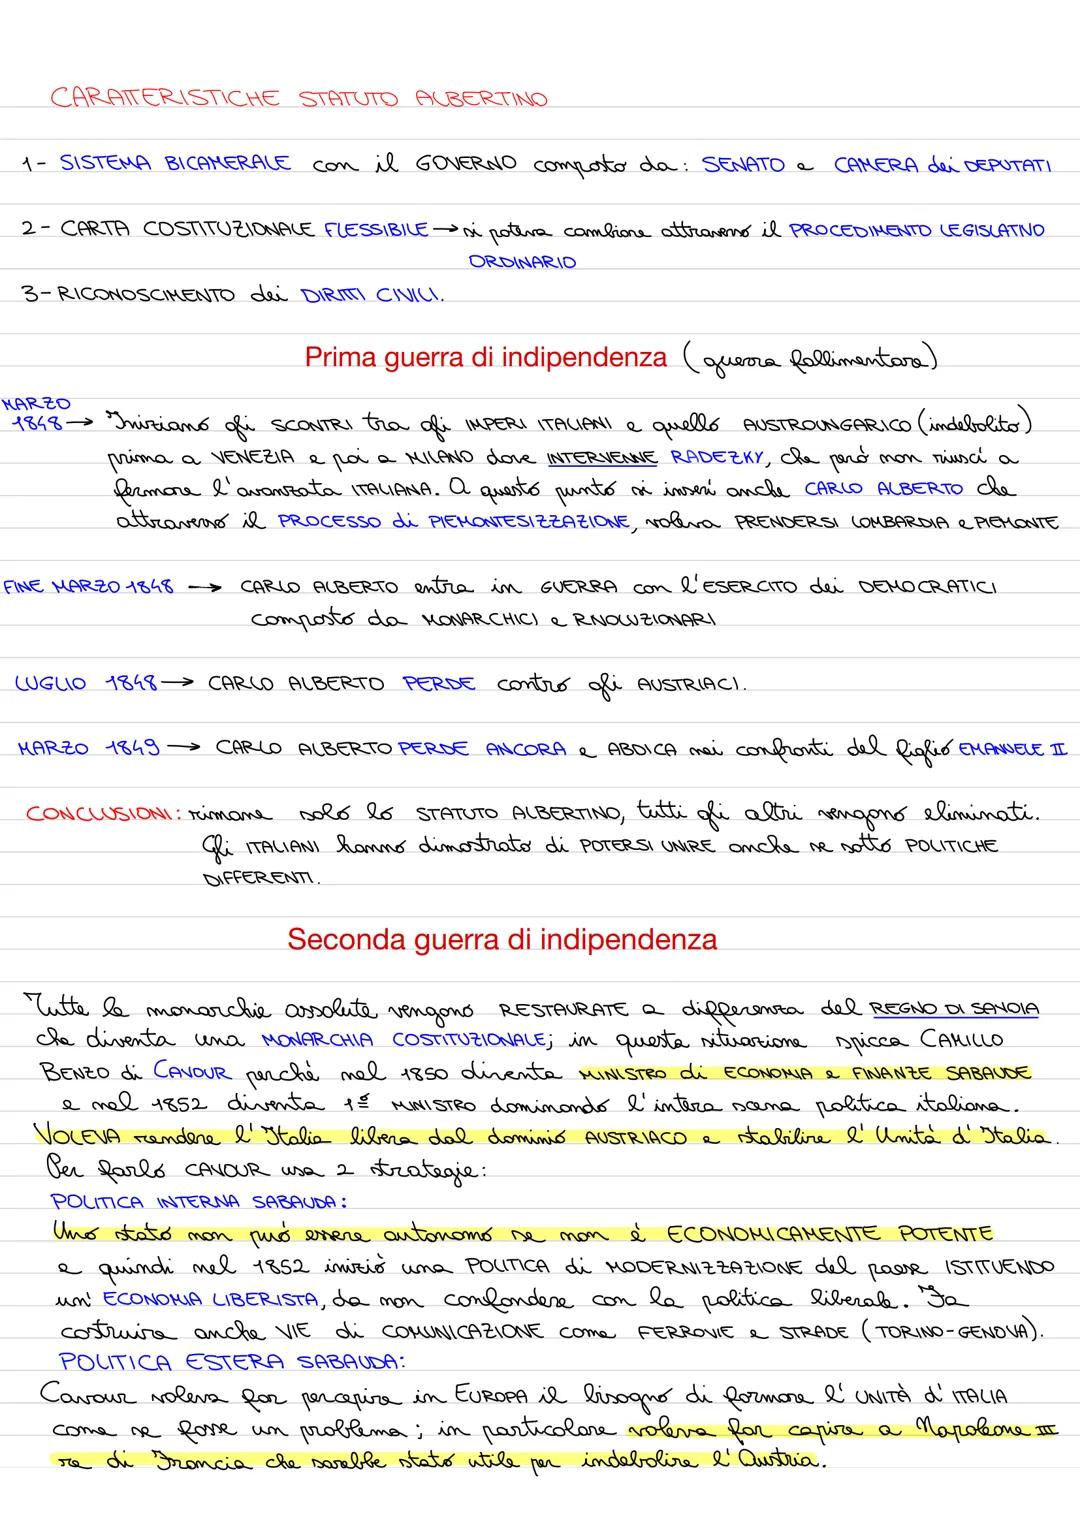 CARATTERISTICHE STATUTO ALBERTINO
1- SISTEMA BICAMERALE con il GOVERNO composto da: SENATO e CAMERA dei DEPUTATI
2- CARTA COSTITUZIONALE FLESSIBILE → si poteva cambiare attraverso il PROCEDIMENTO LEGISLATIVO
ORDINARIO
3- RICONOSCIMENTO dei DIRITTI CIVILI.
Prima guerra di indipendenza (guerra fallimentare)
MARZO
1848 → Iniziano gli SCONTRI tra gli IMPERI ITALIANI e quello AUSTROUNGARICO (indebolito)
prima a VENEZIA e poi a MILANO dove INTERVENNE RADEZKY, che però non riuscì a
fermare l'avanzata ITALIANA. A questo punto si inserì anche CARLO ALBERTO che
attraverso il PROCESSO di PIEMONTESIZZAZIONE, voleva PRENDERSI LOMBARDIA e PIEMONTE
FINE MARZO 1848 → CARLO ALBERTO entra in GUERRA con l'ESERCITO dei DEMOCRATICI
composto da MONARCHICI e RIVOLUZIONARI
LUGLIO 1848 → CARLO ALBERTO PERDE contro gli AUSTRIACI.
MARZO 1849 → CARLO ALBERTO PERDE ANCORA e ABDICA nei confronti del figlio EMANUELE II
CONCLUSIONI: rimane solo lo STATUTO ALBERTINO, tutti gli altri vengono eliminati.
Gli ITALIANI hanno dimostrato di POTERSI UNIRE anche se sotto POLITICHE
DIFFERENTI.
Seconda guerra di indipendenza
Tutte le monarchie assolute vengono RESTAURATE a differenza del REGNO DI SAVOIA
che diventa una MONARCHIA COSTITUZIONALE; in questa situazione spicca CAMILLO
BENZO di CAVOUR perché nel 1850 diventa MINISTRO di ECONOMIA e FINANZE SABAUDE
e nel 1852 diventa 1º MINISTRO dominando l'intera scena politica italiana.
VOLEVA rendere l'Italia libera dal dominio AUSTRIACO e stabilire l'Unità d'Italia.
Per farlo CAVOUR usa 2 strategie:
POLITICA INTERNA SABAUDA:
Uno stato non può essere autonomo se non è ECONOMICAMENTE POTENTE
e quindi nel 1852 iniziò una POLITICA di MODERNIZZAZIONE del paese ISTITUENDO
un' ECONOMIA LIBERISTA, da non confondere con la politica liberale. Fa
costruire anche VIE di COMUNICAZIONE come FERROVIE e STRADE (TORINO-GENOVA).
POLITICA ESTERA SABAUDA:
Cavour voleva far percepire in EUROPA il bisogno di formare l'UNITÀ d'ITALIA
come se fosse un problema; in particolare voleva far capire a Napoleone III
re di Francia che sarebbe stato utile per indebolire l'Austria.